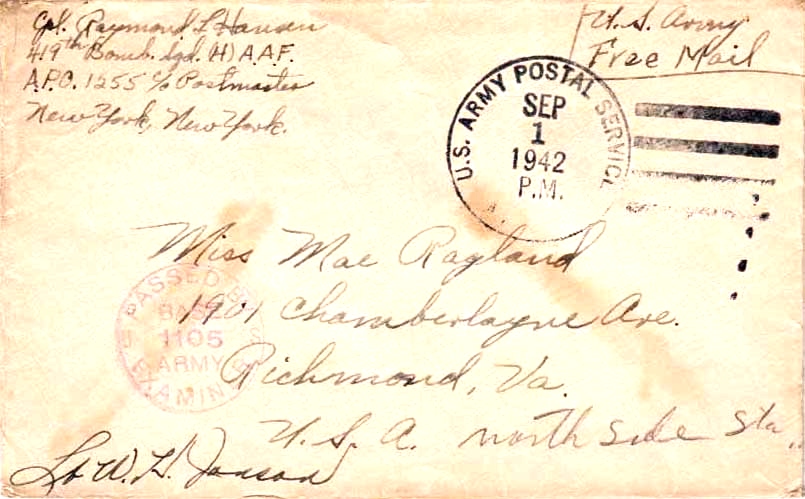 Cpl. Raymond L Hansen
419th Bomb. Sqd. (H) A.A.F.
A.P.O. 1255 c/o Postmaster
New York, New York.
U.S. Army
Free Mail
U.S. ARMY POSTAL SERVICE
SEP
1
1942
P.M.
Miss Mae Ragland
1901 Chamberlayne Ave.
Richmond, Va.
U.S.A. north side Sta.
PASSED BY
BASE
1105
ARMY
EXAMIN
Lt W. H.